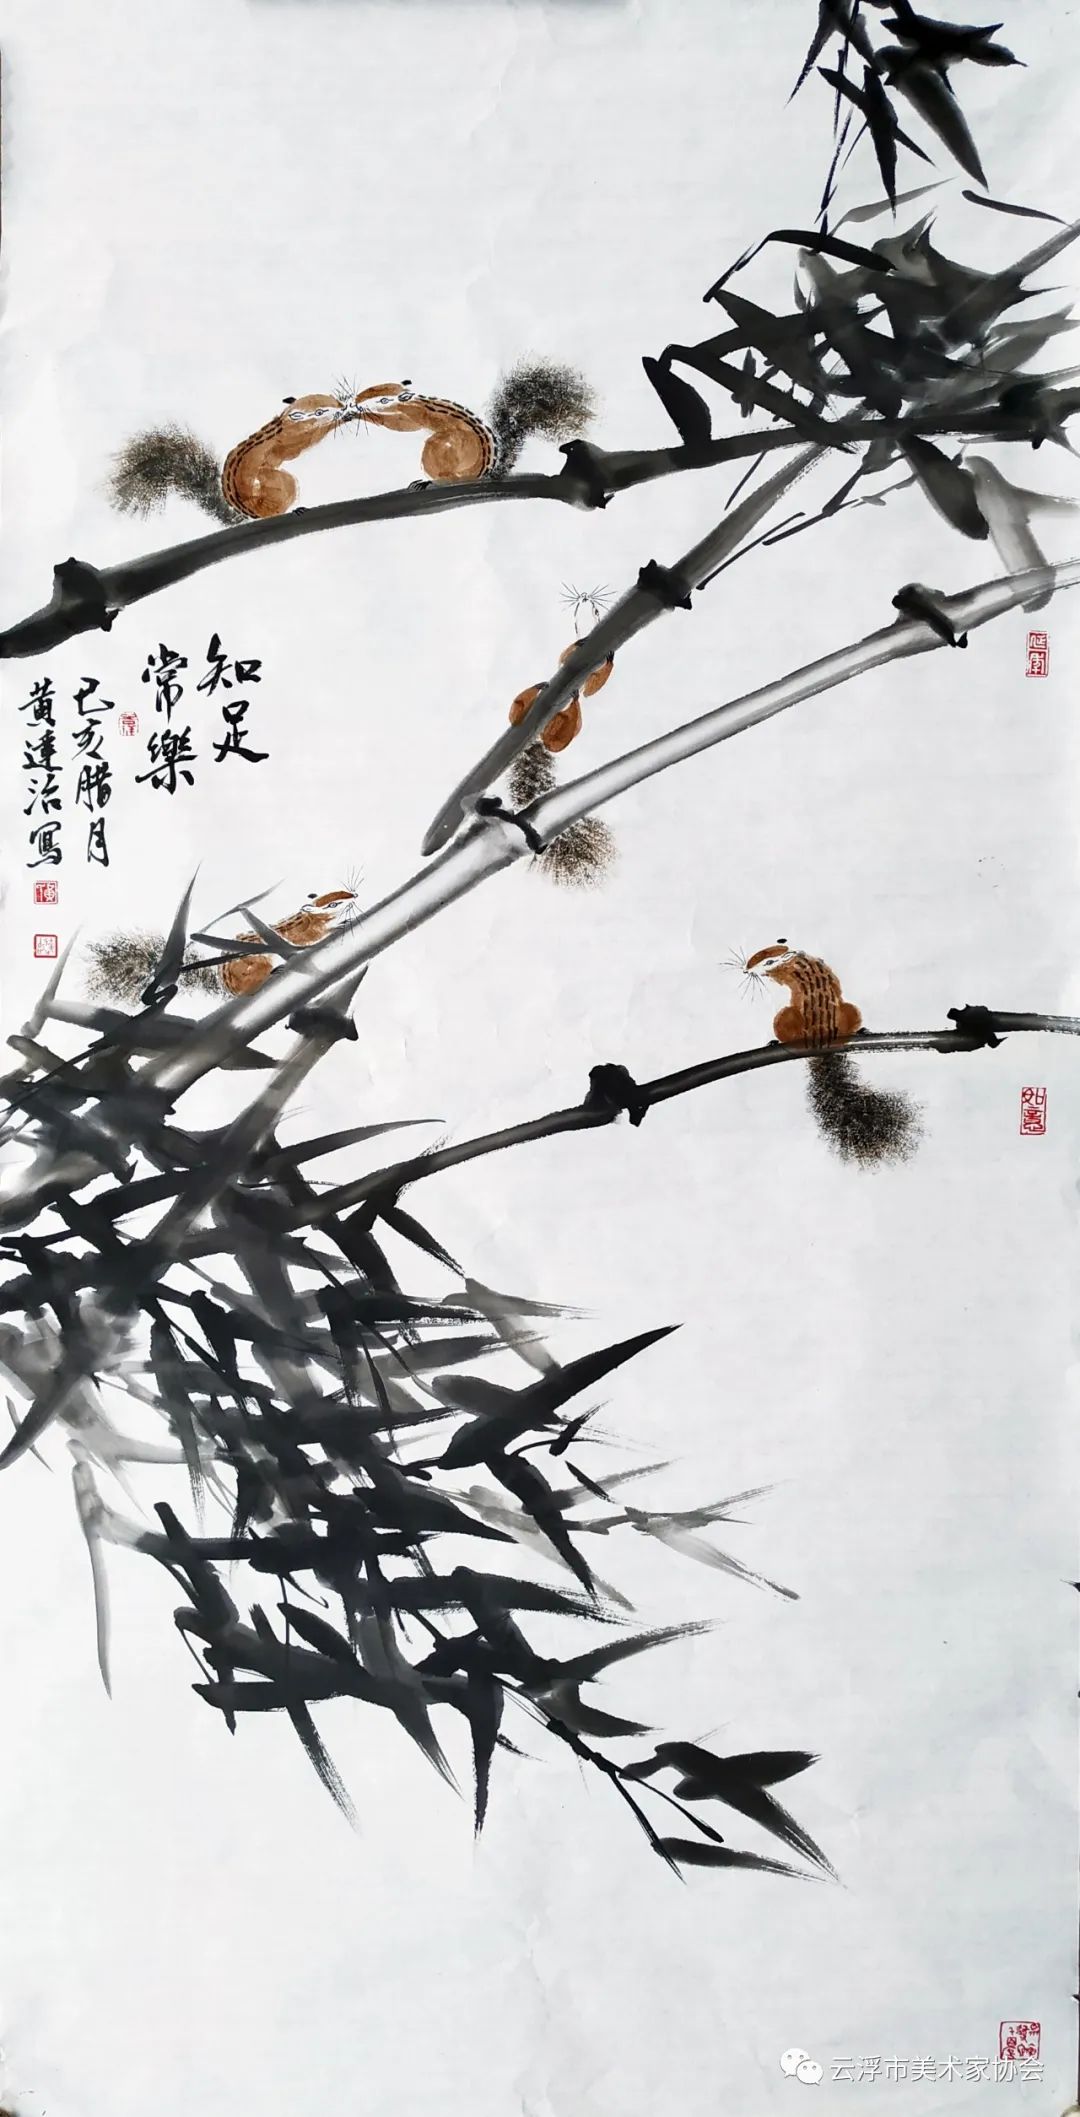 知足
常樂
己亥腊月
黄達治寫
如意
云浮市美术家协会